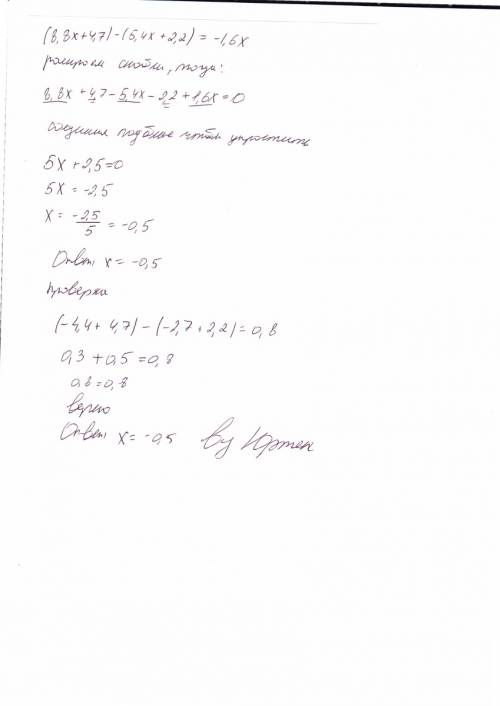 (8,8x+4,7)-(5,4x+2,2) = -1,6x
раскроем скобки, тогда:
8,8x + 4,7 - 5,4x - 2,2 + 1,6x = 0
подобные чтобы упростить
5x + 2,5 = 0
5x = -2,5
x = -2,5/5 = -0,5
Ответ: x = -0,5
проверка
(-4,4 + 4,7) - (-2,7 + 2,2) = 0,8
0,3 + 0,5 = 0,8
0,8 = 0,8
верно
Ответ: x = -0,5 by Юртен